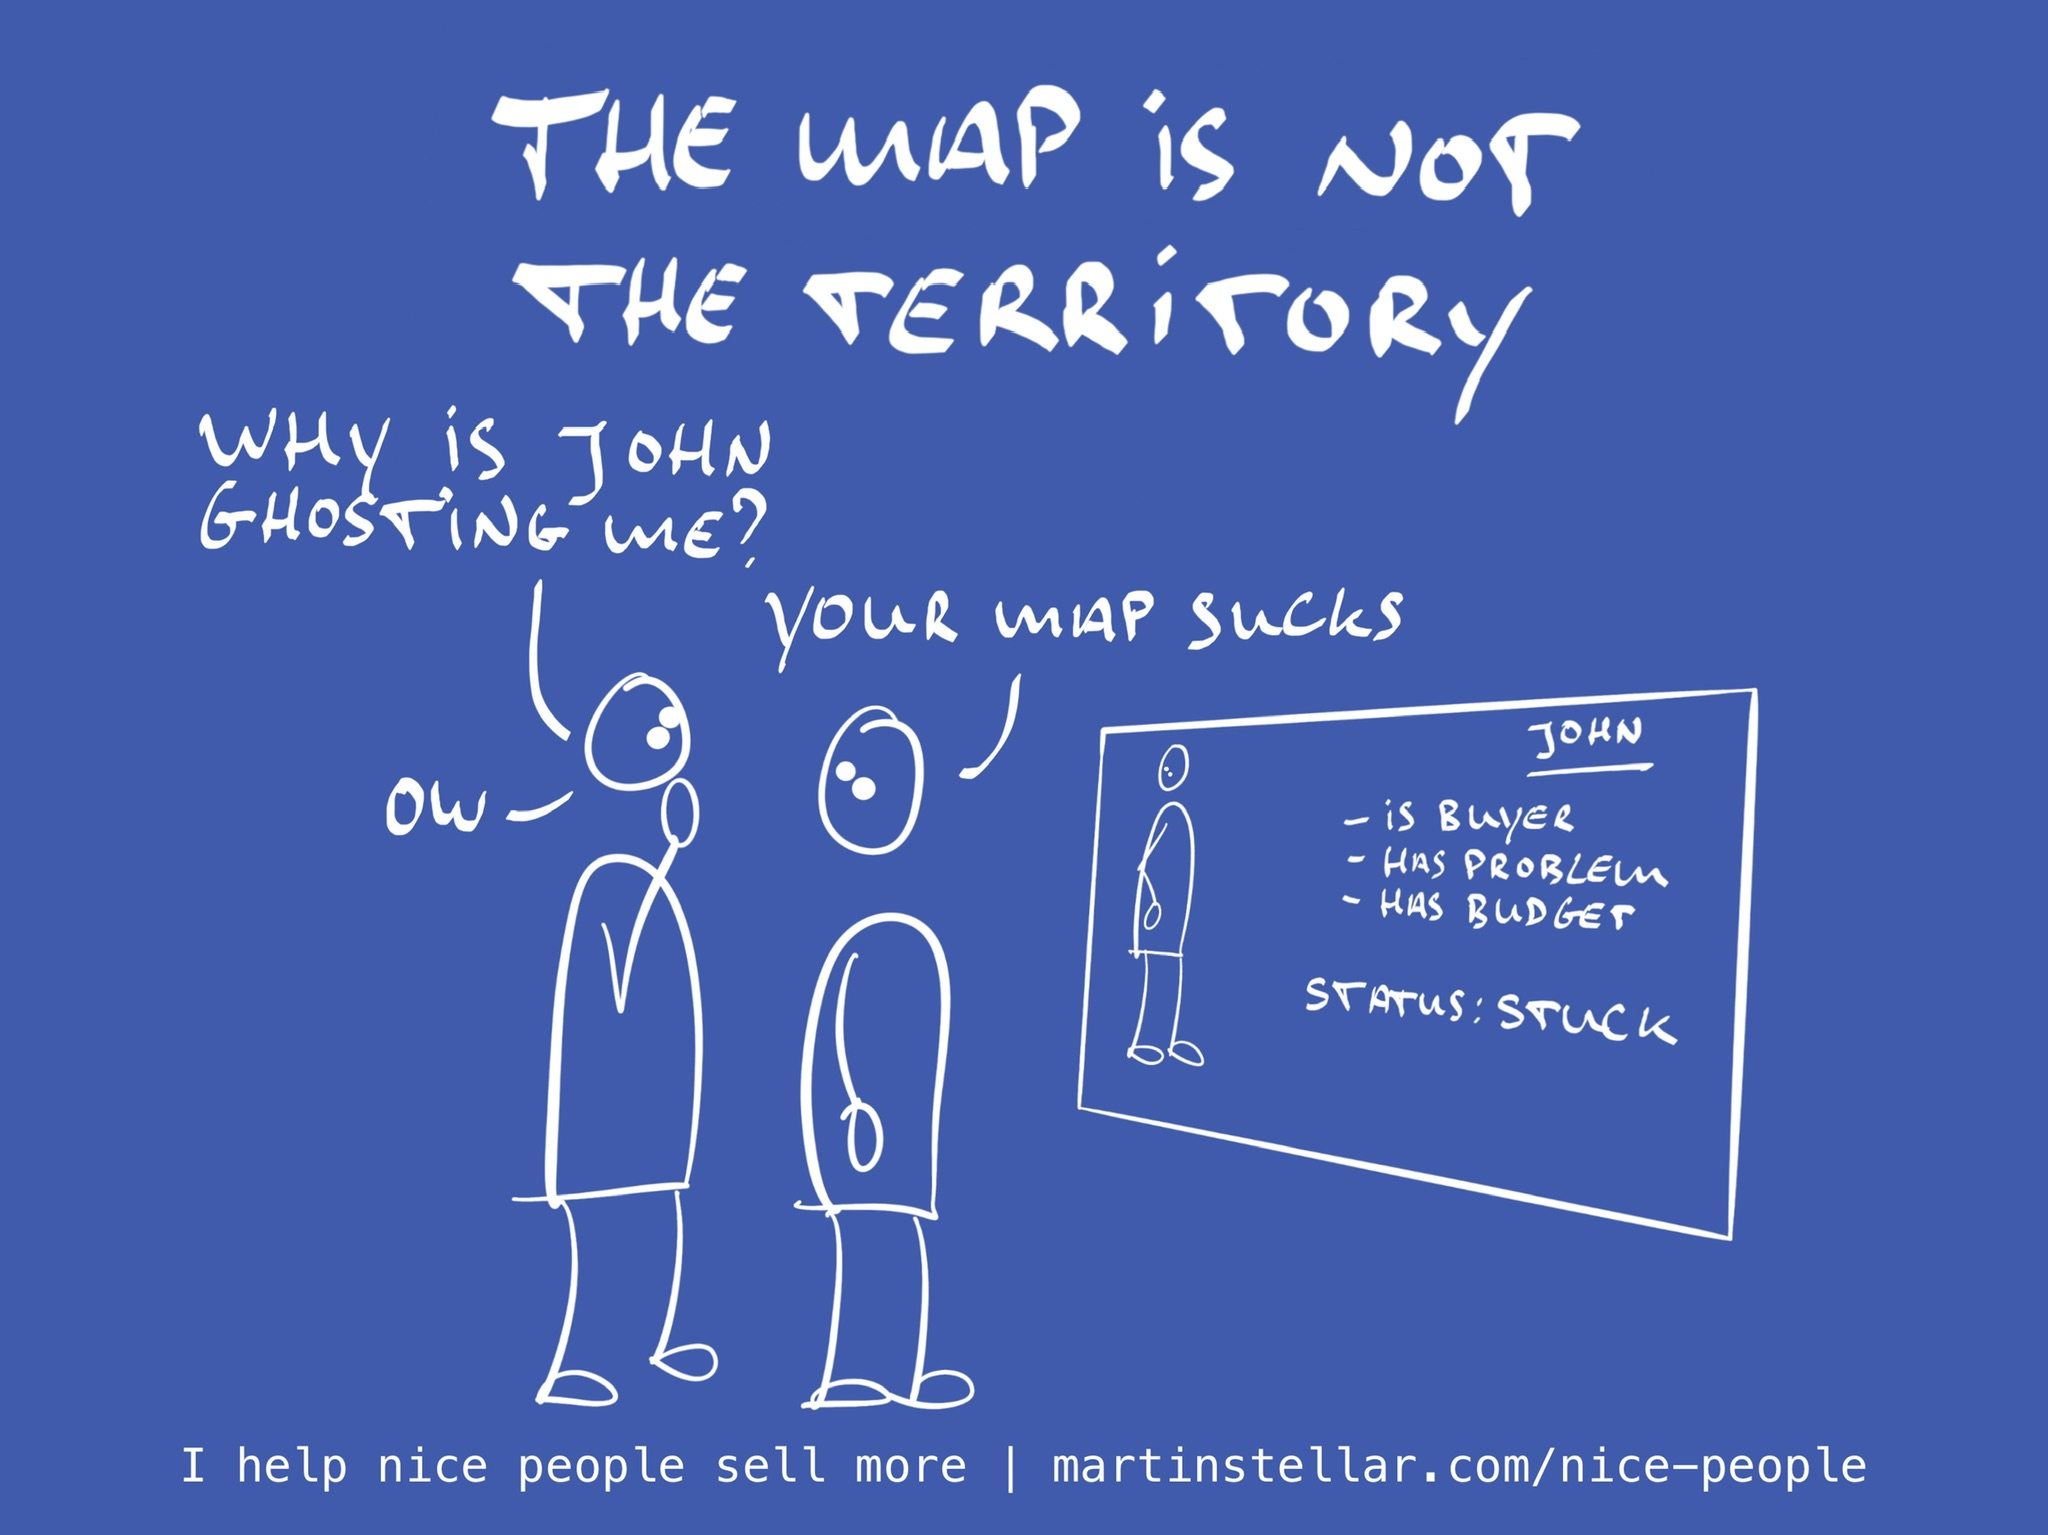 THE MAP iS NOT
THE TERRiTORY
WHY iS JOHN
GHOSTiNG ME?
YOUR MAP SUCKS
OW
JOHN
- iS BUYER
- HAS PROBLEM
- HAS BUDGET
STATUS: STUCK
I help nice people sell more | martinstellar.com/nice-people